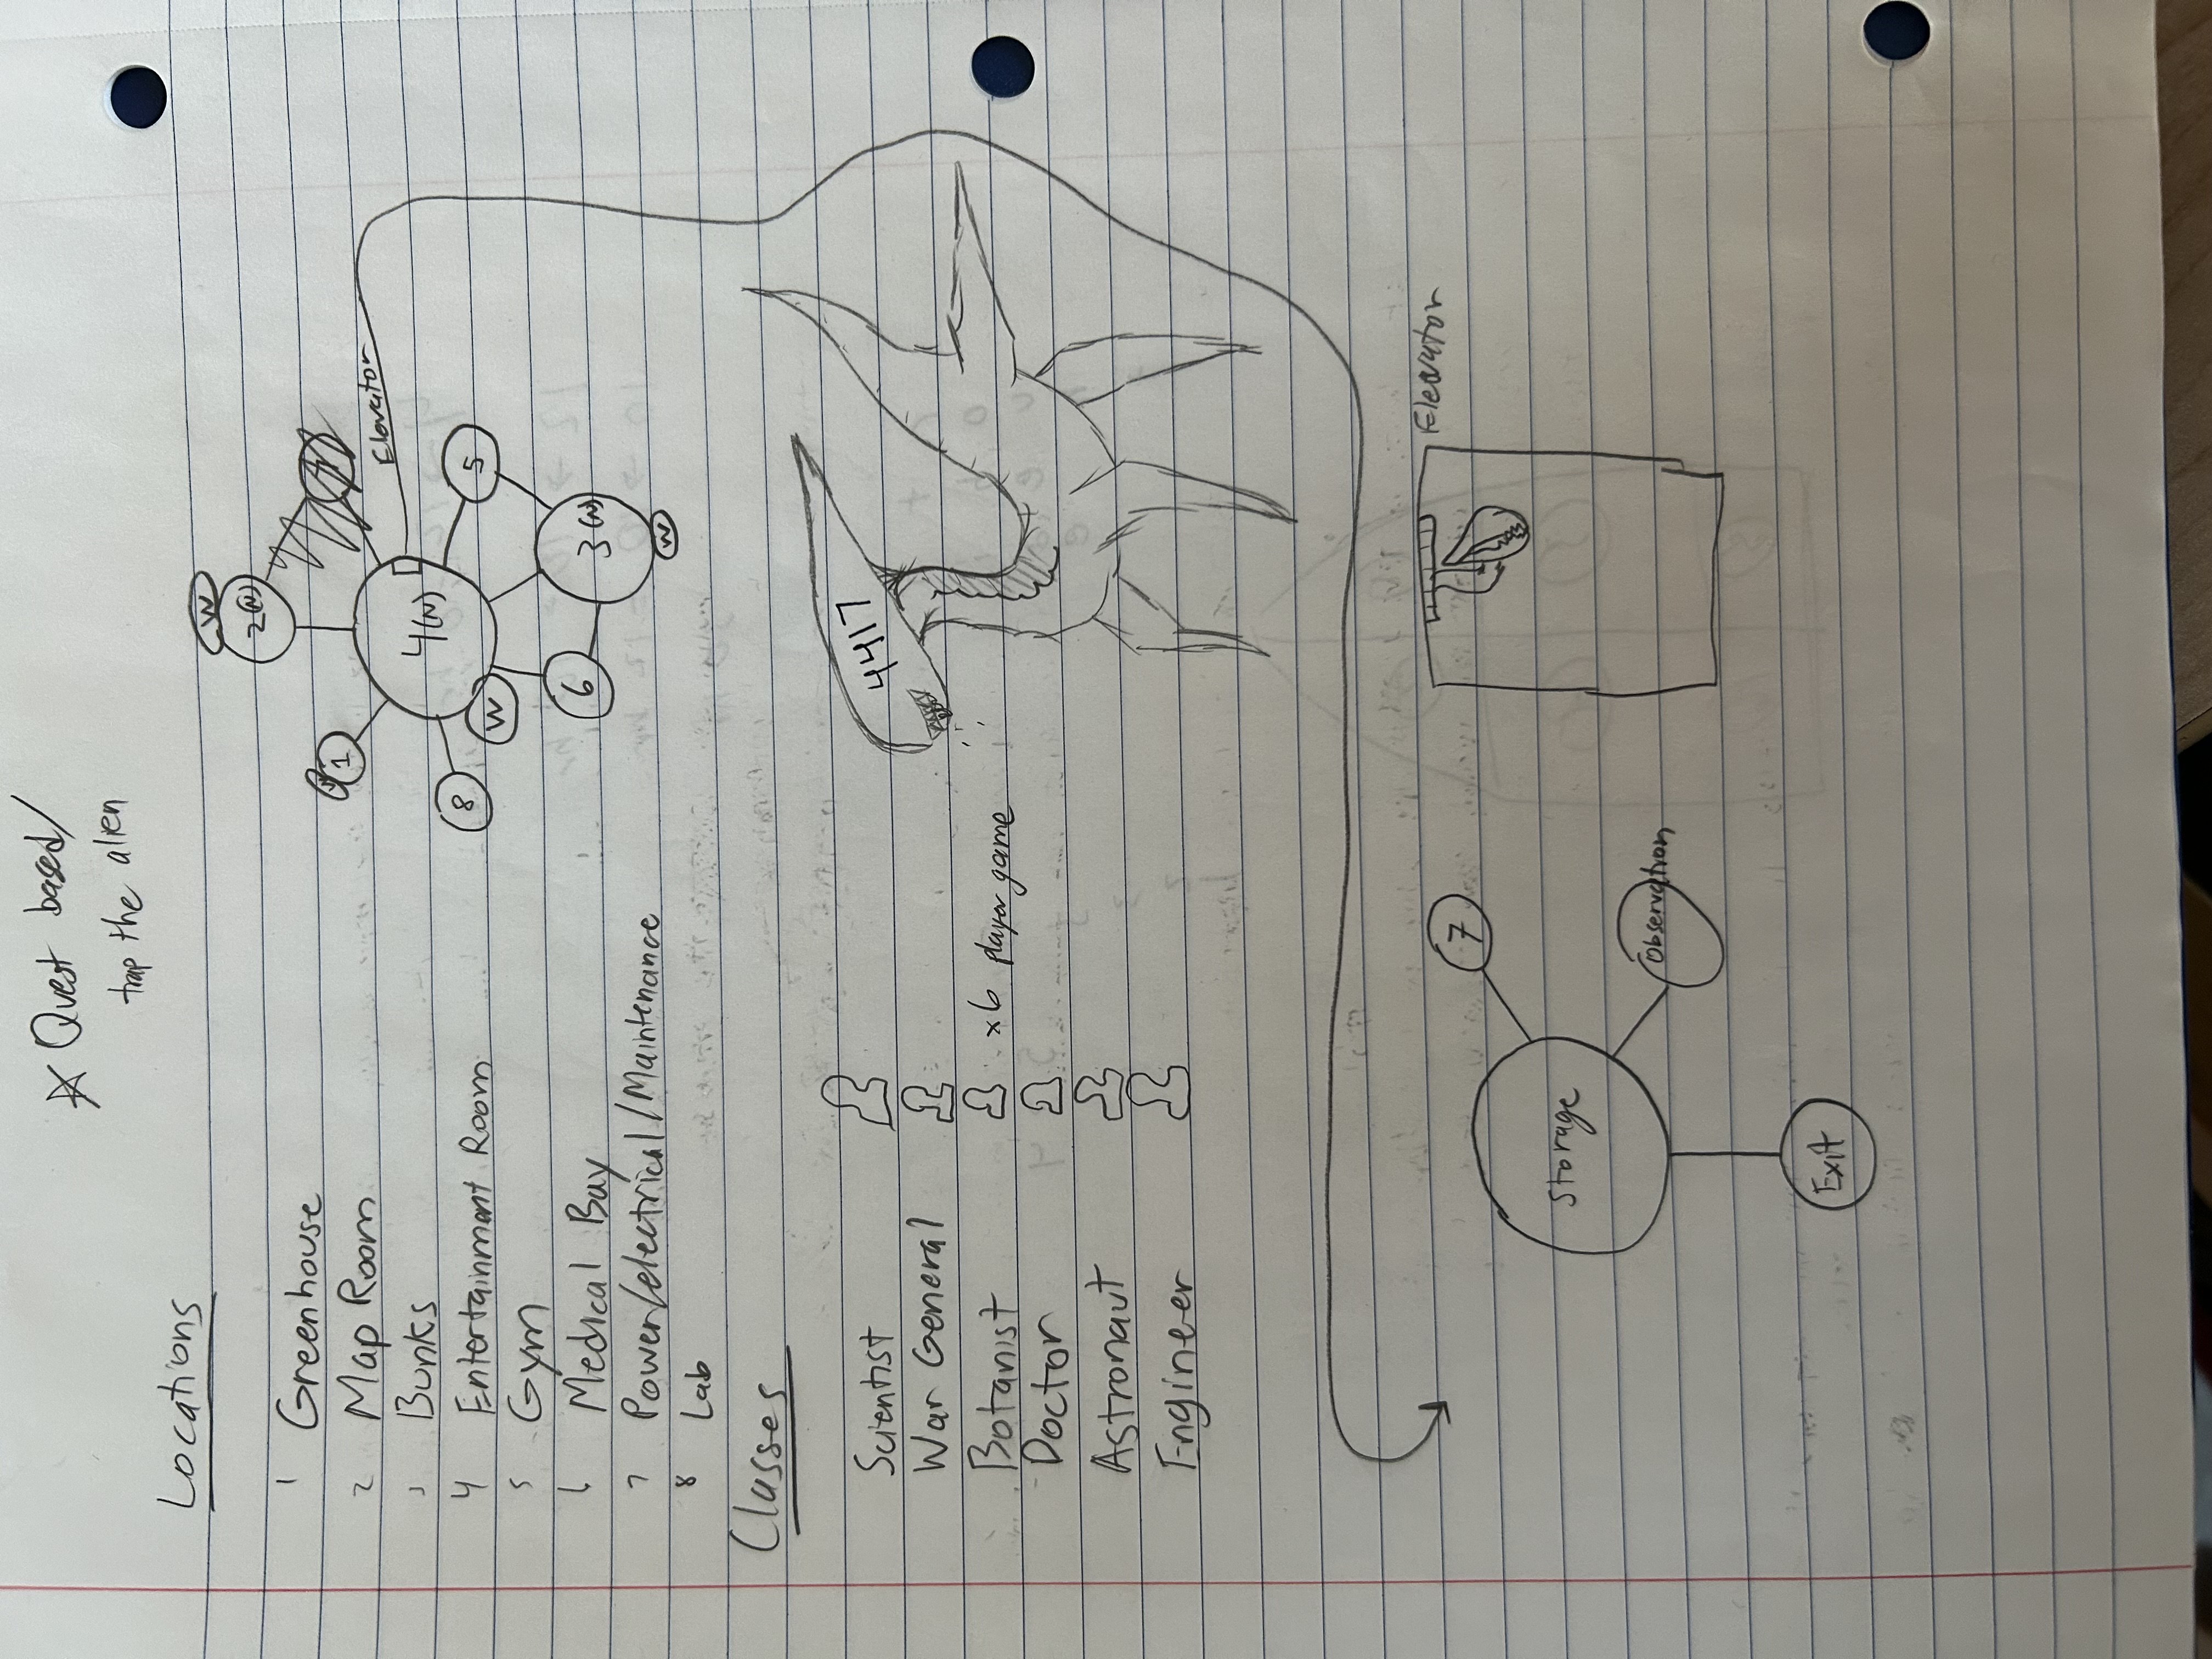 ☆ Quest based/
trap the alien
Locations
1 Greenhouse
2 Map Room
3 Bunks
4 Entertainment Room
5 Gym
6 Medical Bay
7 Power/electrical/Maintenance
8 Lab
W
2(N)
W 1
Elevator
4(N)
8
5
W
6
3(N)
W
Classes
Scientist
War General
Botanist x6 player game
Doctor
Astronaut
Engineer
4417
Elevator
7
Storage
Observation
Exit